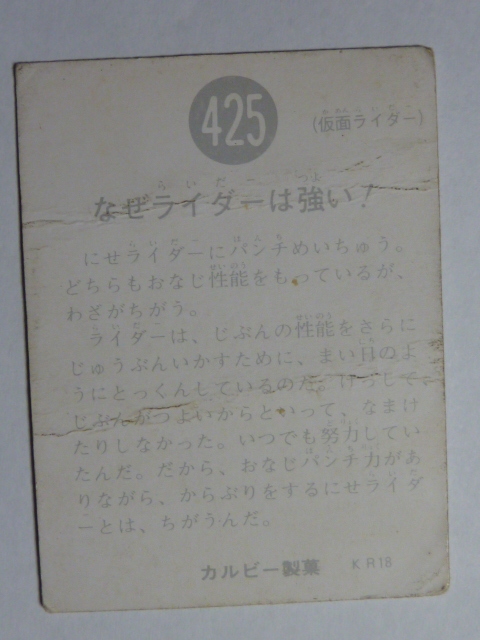 425
(仮面ライダー)
なぜライダーは強い!
にせライダーにパンチめいちゅう。
どちらもおなじ性能をもっているが、
わざがちがう。
ライダーは、じぶんの性能をさらに
じゅうぶんいかすために、まい日のよ
うにとっくんしているのだ。けっして
じぶんがつよいからといって、なまけ
たりしなかった。いつでも努力してい
たんだ。だから、おなじパンチ力があ
りながら、からぶりをするにせライダ
ーとは、ちがうんだ。
カルビー製菓 KR18